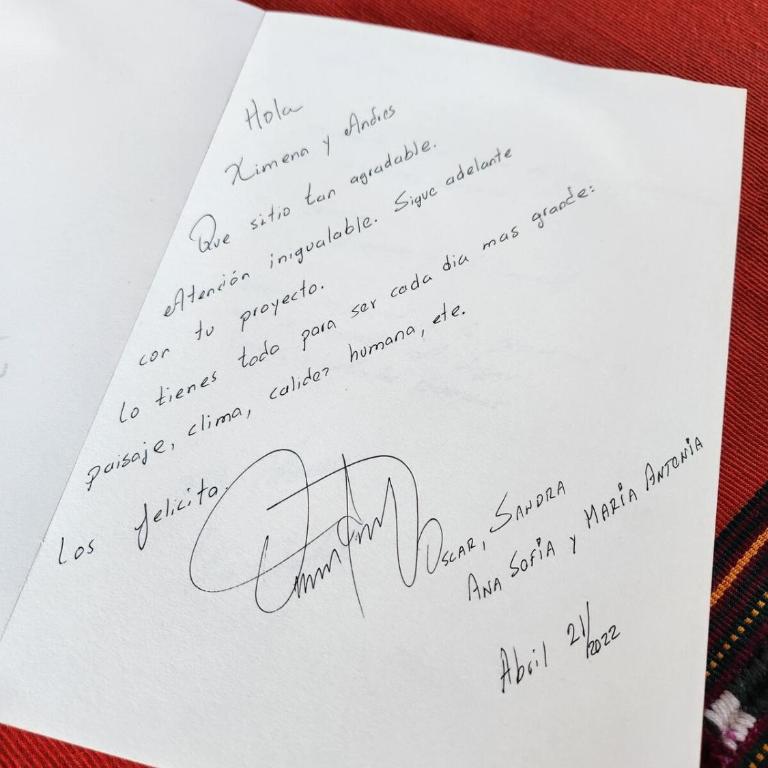 Hola
Ximena y Andres
Que sitio tan agradable.
Atención inigualable. Sigue adelante
con tu proyecto.
Lo tienes todo para ser cada dia mas grande:
paisaje, clima, calidez humana, etc.
Los felicito.
Oscar, Sandra
Ana Sofia y Maria Antonia
Abril 21/2022